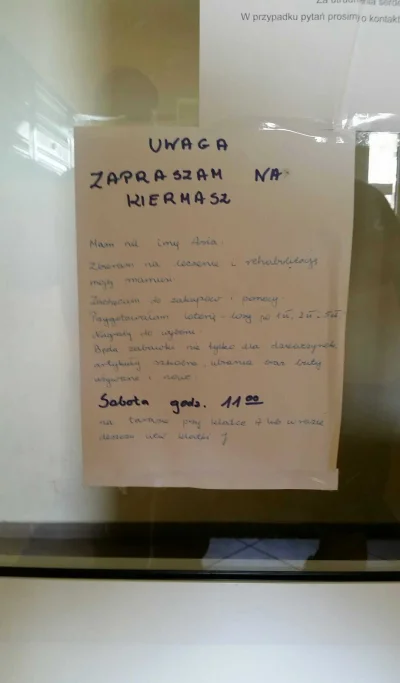 Za utrudnienia serde
W przypadku pytań prosimy o kontakt
UWAGA
ZAPRASZAM NA
KIERMASZ
Mam na imię Ania.
Zbieram na leczenie i rehabilitację
mojej mamusi.
Zachęcam do zakupów i pomocy.
Przygotowałam loterię - losy po 1zł, 2zł i 5zł
Nagrody do wyboru.
Będą zabawki nie tylko dla dziewczynek,
artykuły szkolne, ubrania oraz buty
używane i nowe.
Sobota godz. 11⁰⁰
na tarasie przy klatce 7 lub w razie
deszczu w klatce J